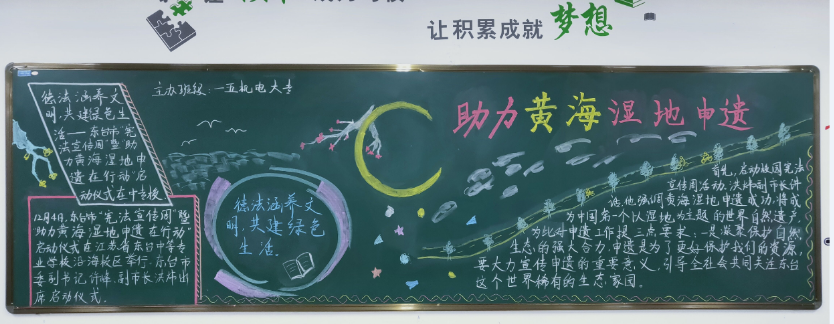 让积累成就 梦想
主办班级：一五机电大专
德法涵养文
明，共建绿色生
活——东台市“宪
法宣传周”暨“助
力黄海湿地申
遗在行动”启
动仪式在中专校
12月4日，东台市“宪法宣传周”暨
“助力黄海湿地申遗在行动”
启动仪式在江苏省东台中等专
业学校沿海校区举行，东台市
委副书记许峰、副市长洪炜出
席启动仪式。
德法涵养文
明，共建绿色
生活。
助力黄海湿地申遗
首先，启动校园宪法
宣传周活动。洪炜副市长讲
话，他强调黄海湿地申遗成功，将成
为中国第一个以湿地为主题的世界自然遗产，
为此对申遗工作提三点要求：一是凝聚保护自然
生态的强大合力，申遗是为了更好保护我们的资源，
要大力宣传申遗的重要意义，引导全社会共同关注东台
这个世界稀有的生态家园。